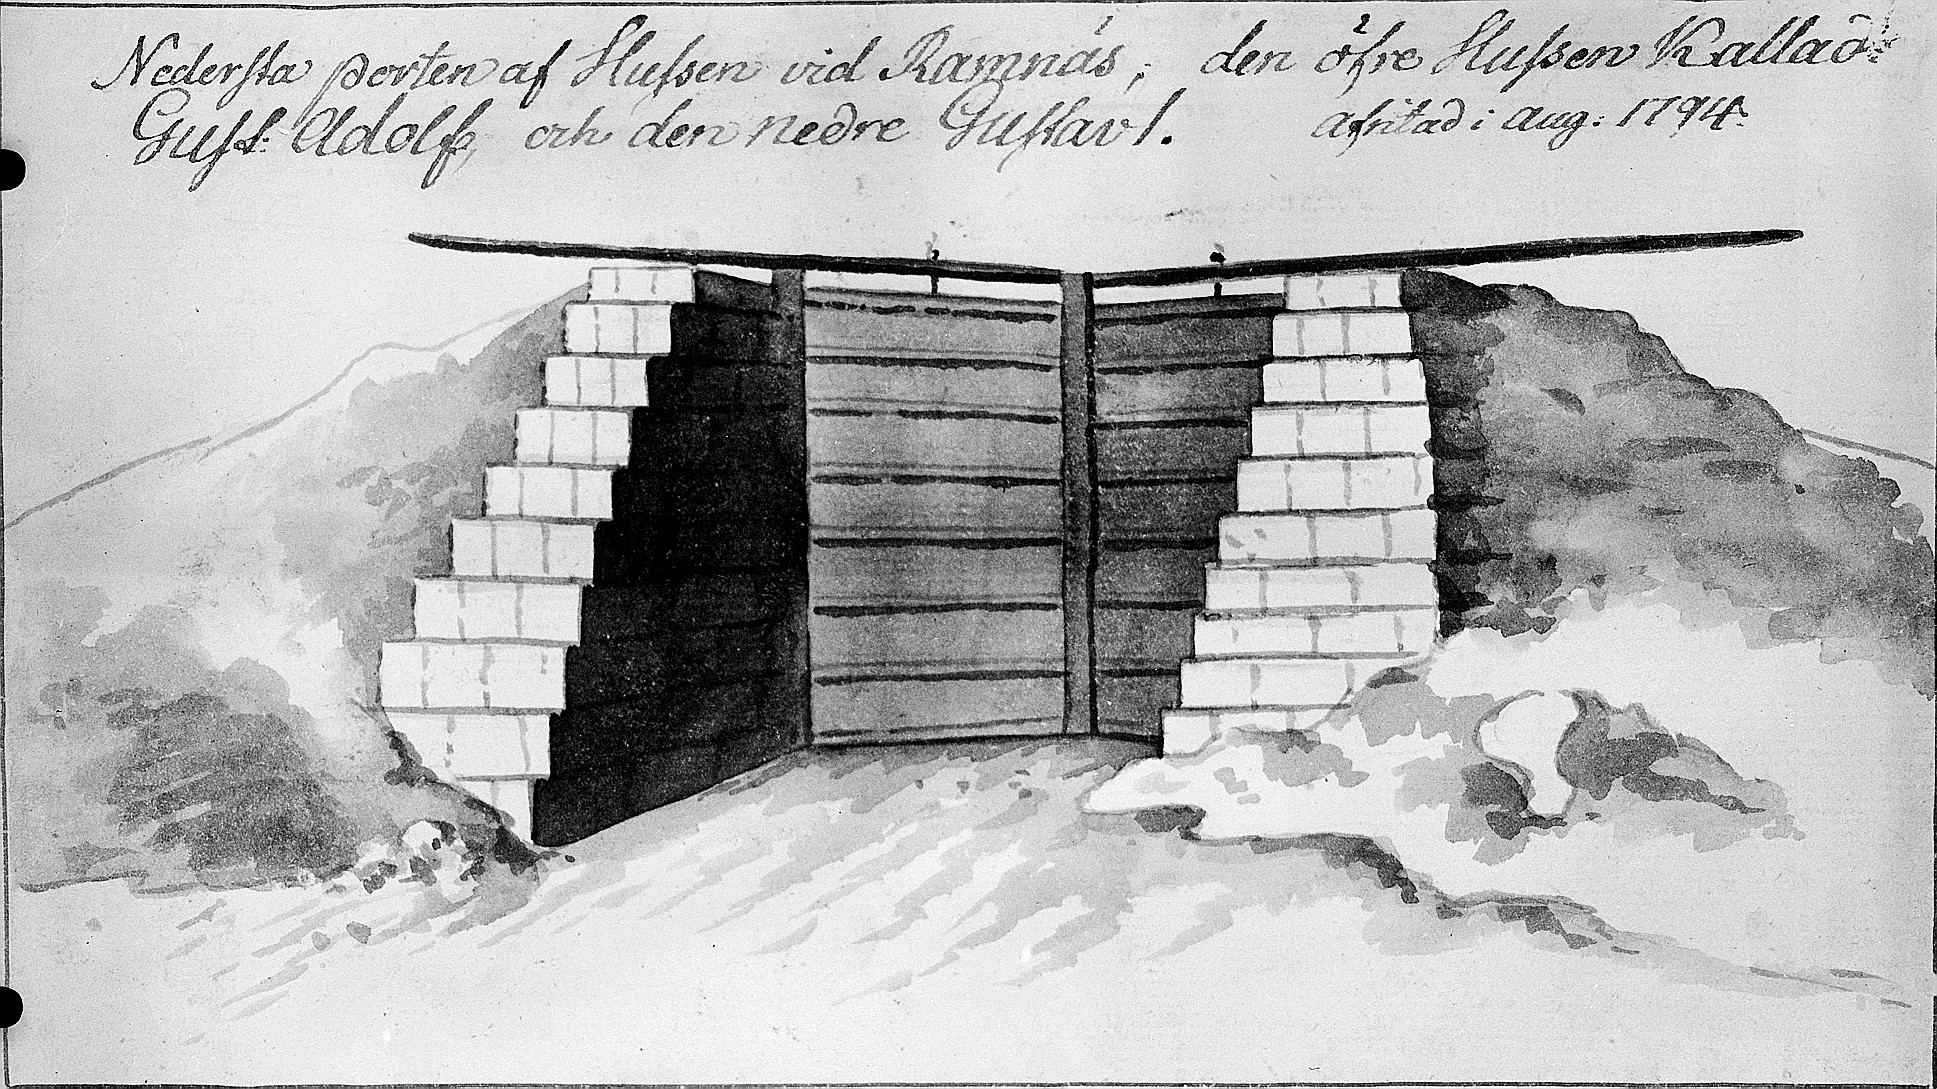 Nedersta porten af Slussen vid Ramnäs, den öfre Slussen Kallad:
Gust. Adolf, och den nedre Gustav I. afritad i Aug: 1794.